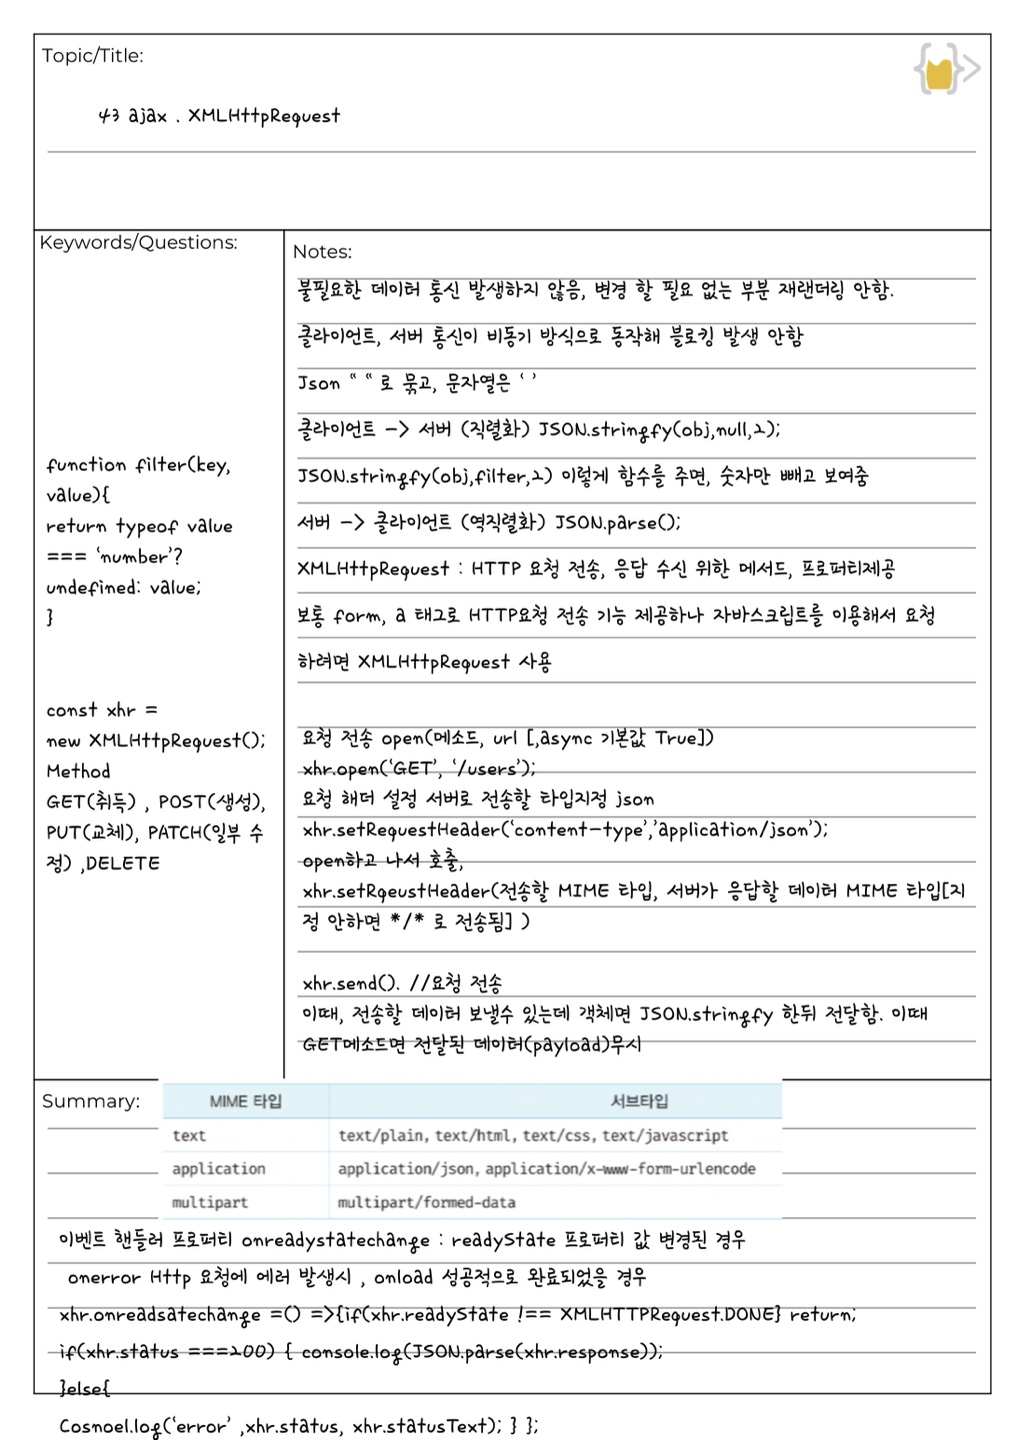 Topic/Title:
43 ajax . XMLHttpRequest
Keywords/Questions:
function filter(key,
value){
return typeof value
=== ‘number’?
undefined: value;
}
const xhr =
new XMLHttpRequest();
Method
GET(취득) , POST(생성),
PUT(교체), PATCH(일부 수
정) ,DELETE
Notes:
불필요한 데이터 통신 발생하지 않음, 변경 할 필요 없는 부분 재랜더링 안함.
클라이언트, 서버 통신이 비동기 방식으로 동작해 블로킹 발생 안함
Json “ “ 로 묶고, 문자열은 ‘ ’
클라이언트 -> 서버 (직렬화) JSON.stringfy(obj,null,2);
JSON.stringfy(obj,filter,2) 이렇게 함수를 주면, 숫자만 빼고 보여줌
서버 -> 클라이언트 (역직렬화) JSON.parse();
XMLHttpRequest : HTTP 요청 전송, 응답 수신 위한 메서드, 프로퍼티제공
보통 form, a 태그로 HTTP요청 전송 기능 제공하나 자바스크립트를 이용해서 요청
하려면 XMLHttpRequest 사용
요청 전송 open(메소드, url [,async 기본값 True])
xhr.open(‘GET’, ‘/users’);
요청 해더 설정 서버로 전송할 타입지정 json
xhr.setRequestHeader(‘content-type’,’application/json’);
open하고 나서 호출,
xhr.setRqeustHeader(전송할 MIME 타입, 서버가 응답할 데이터 MIME 타입[지
정 안하면 */* 로 전송됨] )
xhr.send(). //요청 전송
이때, 전송할 데이터 보낼수 있는데 객체면 JSON.stringfy 한뒤 전달함. 이때
GET메소드면 전달된 데이터(payload)무시
Summary:
MIME 타입 서브타입
text text/plain, text/html, text/css, text/javascript
application application/json, application/x-www-form-urlencode
multipart multipart/formed-data
이벤트 핸들러 프로퍼티 onreadystatechange : readyState 프로퍼티 값 변경된 경우
onerror Http 요청에 에러 발생시 , onload 성공적으로 완료되었을 경우
xhr.onreadsatechange =() =>{if(xhr.readyState !== XMLHTTPRequest.DONE} return;
if(xhr.status ===200) { console.log(JSON.parse(xhr.response));
}else{
Cosnoel.log(‘error’ ,xhr.status, xhr.statusText); } };